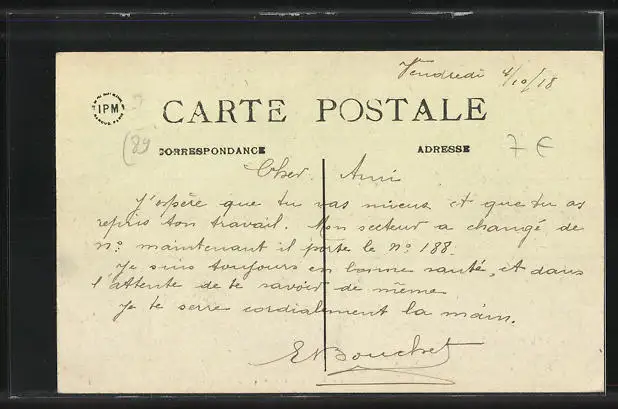 Vendredi 4/10/18
IPM
CARTE POSTALE
(89
CORRESPONDANCE
ADRESSE
7 €
Cher Ami
J'espère que tu vas mieux et que tu as
repris ton travail. Mon secteur a changé de
n° maintenant il porte le n° 188.
Je suis toujours en bonne santé, et dans
l'attente de te savoir de même
Je te serre cordialement la main.
E Bouchet